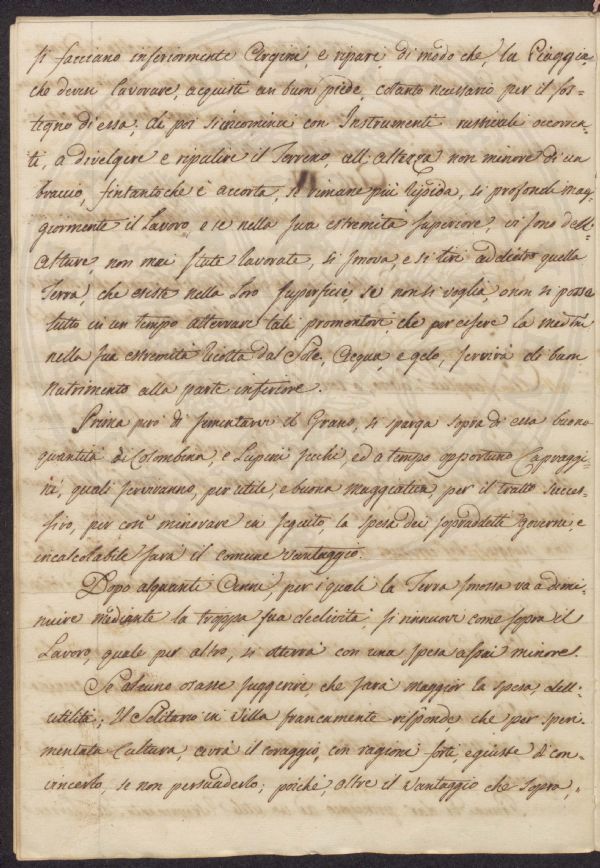 si facciano inferiormente Argini, e ripari di modo che la Piaggia,
che devesi lavorare, acquisti un buon piede, cotanto necessario per il sos=
tegno di essa, di poi s'incominci con Instrumenti rusticali occorren
ti, a divelgere e ripulire il Terreno, all'altezza non minore di un
braccio, fintantoche è accorta, se rimane più ripida, si profondi mag=
giormente il Lavoro, e se nella sua estremità superiore, vi sono dell'
Alture, non mai state lavorate, si smova, e si tiri addietro quella
Terra, che esiste nella loro superficie, se non si voglia, o non si possa
tutto in un tempo atterrare tali promontori, che per essere la medma
nella sua estremità ricotta dal Sole, Acqua, e gelo, servirà di buon
Nutrimento alla parte inferiore.
Prima però di sementarvi il Grano, si sparga sopra di essa buona
quantità di Colombina, e Lupini secchi, ed a tempo opportuno Capraggi=
ni, quali serviranno, per utile, e buona Maggiatica, per il tratto succes=
sivo, per così minorare in seguito, la spesa dei sopraddetti governi, e
incalcolabile sarà il comune vantaggio.
Dopo alquanti Anni, per i quali la Terra smossa va a dimi=
nuire mediante la troppa sua declività, si rinnuovi come sopra il
Lavoro, quale per altro, si otterrà con una spesa assai minore.
Se alcuno osasse suggerire che sarà maggior la spesa, dell'
utilità; Il Solitario in Villa francamente risponde che per speri=
mentata Cultura, avrà il coraggio, con ragioni forti, e giuste di con=
vincerlo, se non persuaderlo; poichè, oltre il vantaggio che sopra,